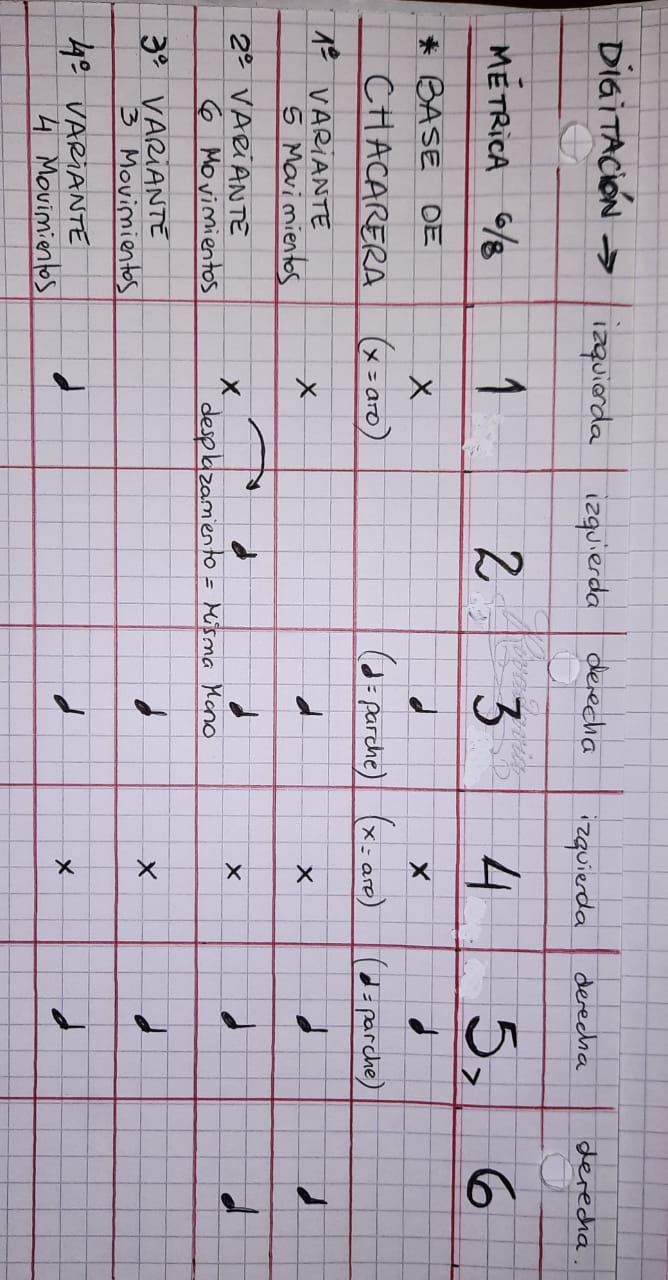 DIGITACIÓN → izquierda izquierda derecha izquierda derecha derecha.
MÉTRICA 6/8 1 2 3 4 5 > 6
* BASE DE x d x d
CHACARERA (x = aro) (d = parche) (x = aro) (d = parche)
1º VARIANTE x d x d d
5 Movimientos
2º VARIANTE x d d x d d
6 Movimientos desplazamiento = Misma Mano
3º VARIANTE d x d
3 Movimientos
4º VARIANTE d d x d
4 Movimientos